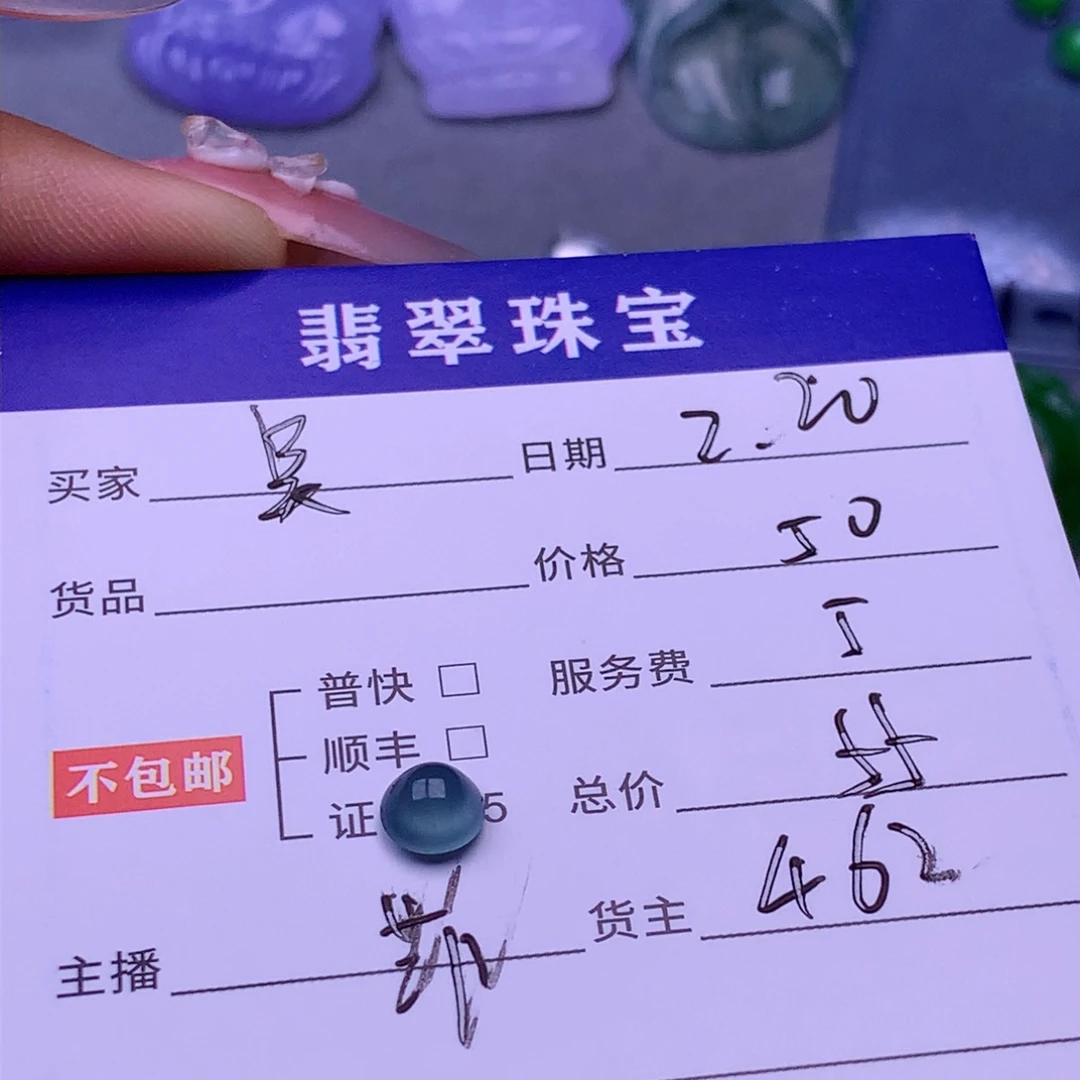 翡翠珠宝
买家 吴 日期 2.20
货品 价格 50
普快 □ 服务费 5
顺丰 □
不包邮
证 5 总价 55
主播 货主 462